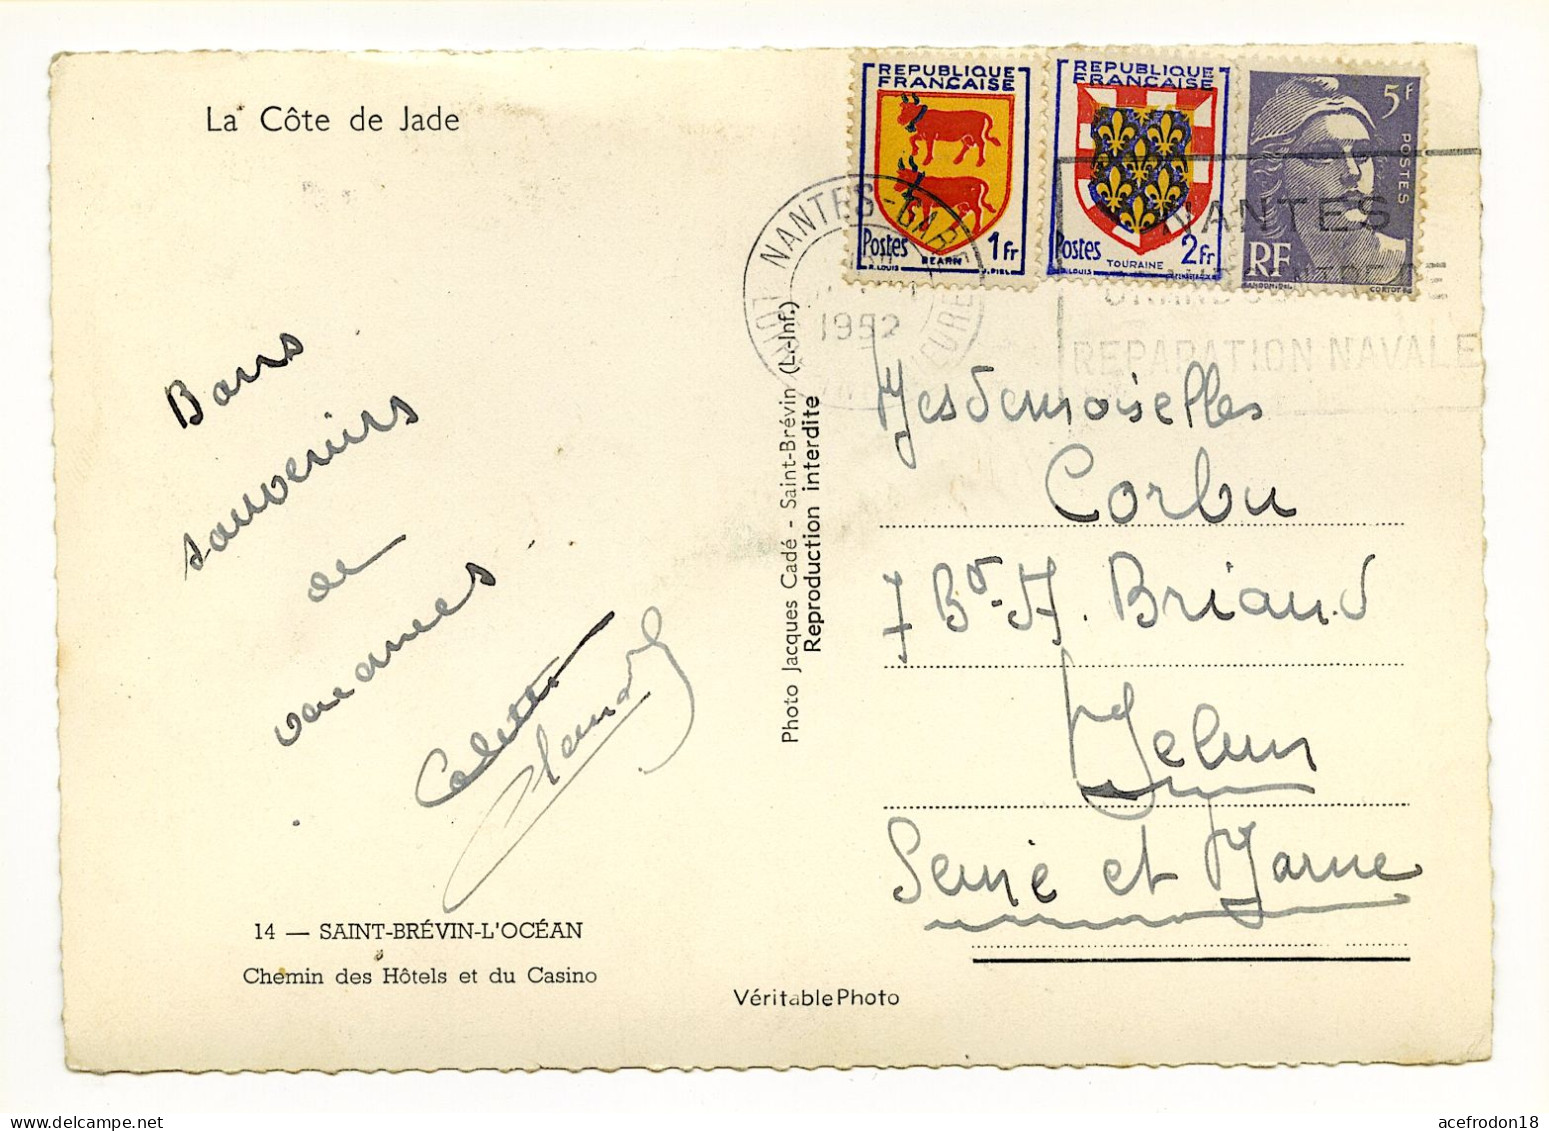 La Côte de Jade
Bons
souvenirs
de
vacances
Colette
Claude
14 — SAINT-BRÉVIN-L'OCÉAN
Chemin des Hôtels et du Casino
Photo Jacques Cadé - Saint-Brévin (L.-Inf.)
Reproduction interdite
VéritablePhoto
REPUBLIQUE
FRANÇAISE
Postes 1Fr
BEARN
R.LOUIS J.PIEL
REPUBLIQUE
FRANÇAISE
Postes 2Fr
TOURAINE
R.LOUIS
5F
POSTES
RF
GANDON.DEL CORTOT.SC
NANTES-GARE
1952
NANTES
GRAND CENTRE DE
REPARATION NAVALE
Mesdemoiselles
Corbu
7 Bd. A. Briand
Melun
Seine et Marne
acefrodon18